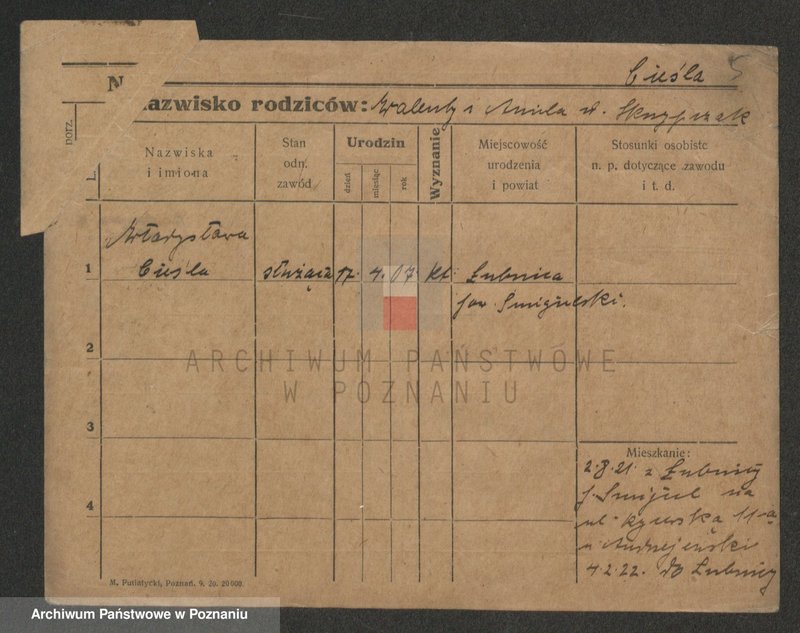 Cieśla
N
azwisko rodziców: Walenty i Aniela d. Skrzypczak
porz.
L.
Nazwiska
i imiona
Stan
odn.
zawód
Urodzin
dzień
miesiąc
rok
Wyznanie
Miejscowość
urodzenia
i powiat
Stosunki osobiste
n. p. dotyczące zawodu
i t. d.
Władysława
1 Cieśla służąca 17. 4. 07. kt. Łubnica
pow Śmigielski.
2
3
4
ARCHIWUM PAŃSTWOWE
W POZNANIU
Mieszkanie:
2.8.21. z Łubnicy
p. Śmigiel na
ul. 11-a
u
4 2.22. do Łubnicy
M. Putiatycki, Poznań. 9. 20. 20 000.
Archiwum Państwowe w Poznaniu